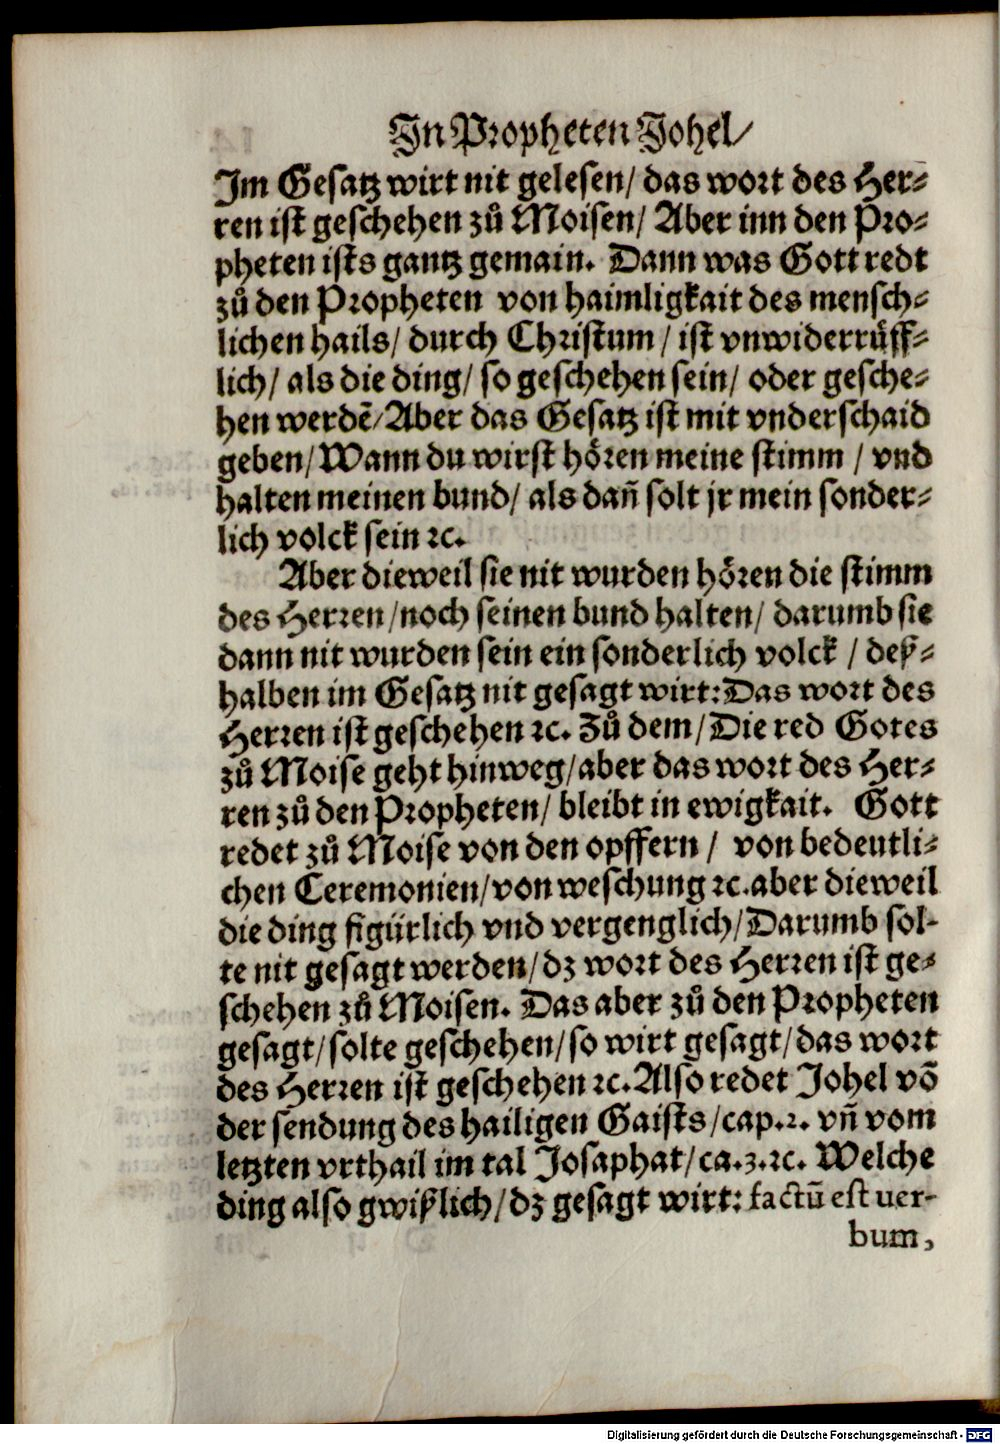 In Propheten Johel/
Im Gesatz wirt nit gelesen/ das wort des Her⸗
ren ist geschehen zů Moisen/ Aber inn den Pro⸗
pheten ists gantz gemain. Dann was Gott redt
zů den Propheten von haimligkait des mensch⸗
lichen hails/ durch Christum / ist vnwiderrůff⸗
lich/ als die ding/ so geschehen sein/ oder gesche⸗
hen werdē/ Aber das Gesatz ist mit vnderschaid
geben/ Wann du wirst hören meine stimm / vnd
halten meinen bund/ als dañ solt jr mein sonder⸗
lich volck sein ꝛc.
Aber dieweil sie nit wurden hören die stimm
des Herren/ noch seinen bund halten/ darumb sie
dann nit wurden sein ein sonderlich volck / deß⸗
halben im Gesatz nit gesagt wirt: Das wort des
Herren ist geschehen ꝛc. Zů dem/ Die red Gotes
zů Moise geht hinweg/ aber das wort des Her⸗
ren zů den Propheten/ bleibt in ewigkait. Gott
redet zů Moise von den opffern / von bedeutli⸗
chen Ceremonien/ von weschung ꝛc. aber dieweil
die ding figürlich vnd vergenglich/ Darumb sol⸗
te nit gesagt werden/ dz wort des Herren ist ge⸗
schehen zů Moisen. Das aber zů den Propheten
gesagt/ solte geschehen/ so wirt gesagt/ das wort
des Herren ist geschehen ꝛc. Also redet Johel võ
der sendung des hailigen Gaists/ cap.2. vñ vom
letzten vrthail im tal Josaphat/ ca.3.ꝛc. Welche
ding also gwißlich/ dz gesagt wirt: factũ est uer-
bum,
Digitalisierung gefördert durch die Deutsche Forschungsgemeinschaft - DFG